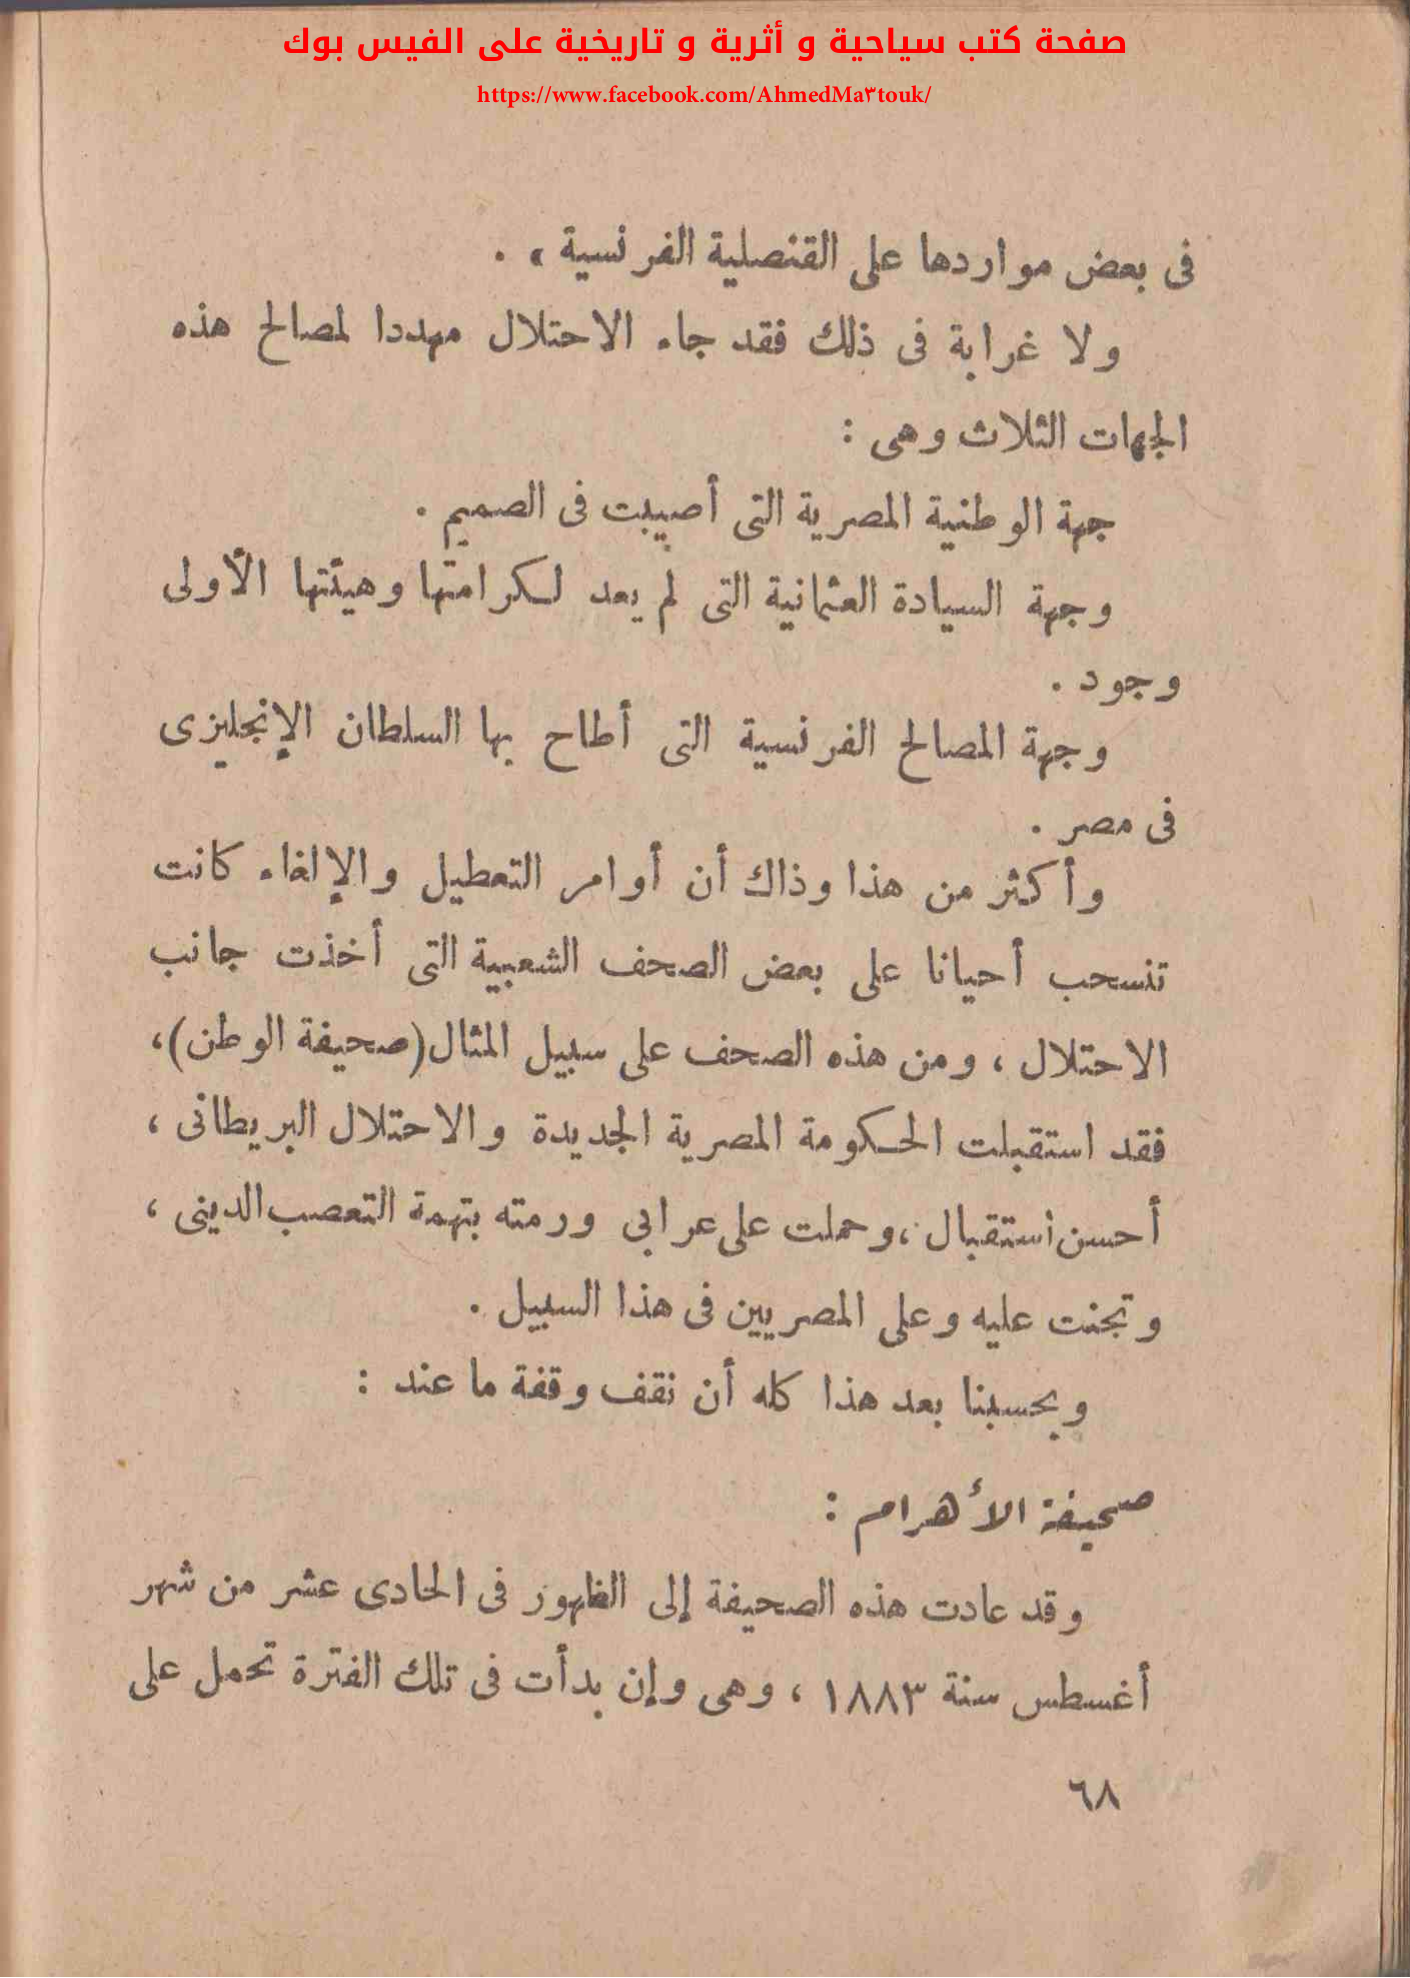 صفحة كتب سياحية و أثرية و تاريخية على الفيس بوك
https://www.facebook.com/AhmedMa٣touk/
فى بعض مواردها على القنصلية الفرنسية » .
ولا غرابة فى ذلك فقد جاء الاحتلال مهددا لمصالح هذه
الجهات الثلاث وهى :
جهة الوطنية المصرية التى أصيبت فى الصميم .
وجهة السيادة العثمانية التى لم يعد لكرامتها وهيئتها الأولى
وجود .
وجهة المصالح الفرنسية التى أطاح بها السلطان الإنجليزى
فى مصر .
وأكثر من هذا وذاك أن أوامر التعطيل والإلغاء كانت
تنسحب أحيانا على بعض الصحف الشعبية التى أخذت جانب
الاحتلال ، ومن هذه الصحف على سبيل المثال (صحيفة الوطن)،
فقد استقبلت الحكومة المصرية الجديدة والاحتلال البريطانى ،
أحسن استقبال ، وحملت على عرابى ورمته بتهمة التعصب الدينى ،
وتجنت عليه وعلى المصريين فى هذا السبيل .
وبحسبنا بعد هذا كله أن نقف وقفة ما عند :
صحيفة الأهرام :
وقد عادت هذه الصحيفة إلى الظهور فى الحادى عشر من شهر
أغسطس سنة ١٨٨٣ ، وهى وإن بدأت فى تلك الفترة تحمل على
٦٨